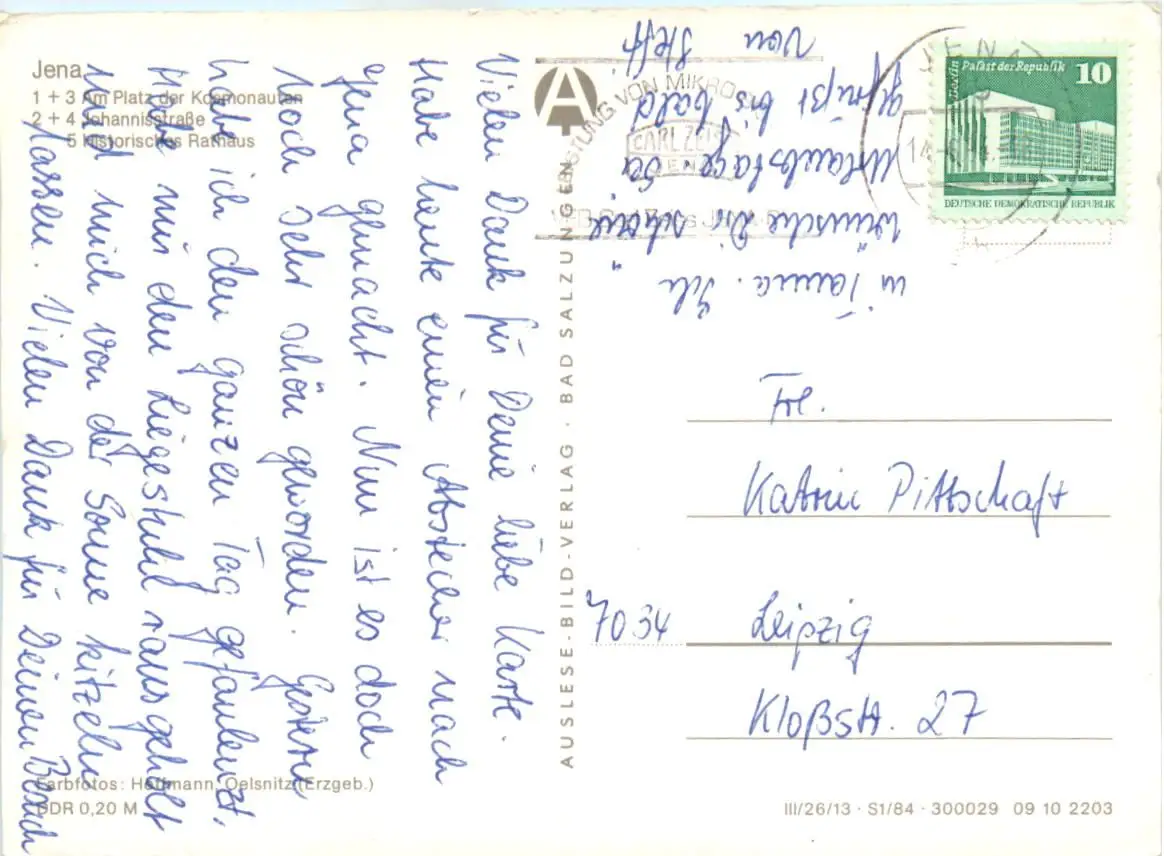 Jena
1 + 3 Am Platz der Kosmonauten
2 + 4 Johannisstraße
5 Historisches Rathaus
Vielen Dank für Deine liebe Karte.
Habe heute einen Abstecher nach
Jena gemacht. Nun ist es doch
noch sehr schön geworden. Gestern
habe ich den ganzen Tag gefaulenzt.
Habe mir den Liegestuhl rausgeholt
und mich von der Sonne kitzeln
lassen. Vielen Dank für Deinen Besuch
in Tanna. Ich
wünsche Dir schöne
Urlaubstage. Es
grüßt bis bald
von Steffi
AUSLESE-BILD-VERLAG · BAD SALZUNGEN
VON MIKRO
CARL ZEISS
JENA
JENA
Berlin Palast der Republik
10
DEUTSCHE DEMOKRATISCHE REPUBLIK
Frl.
Katrin Pittschaft
7034 Leipzig
Kloßstr. 27
Farbfotos: Hoffmann, Oelsnitz (Erzgeb.)
DDR 0,20 M
III/26/13 · S1/84 · 300029 09 10 2203